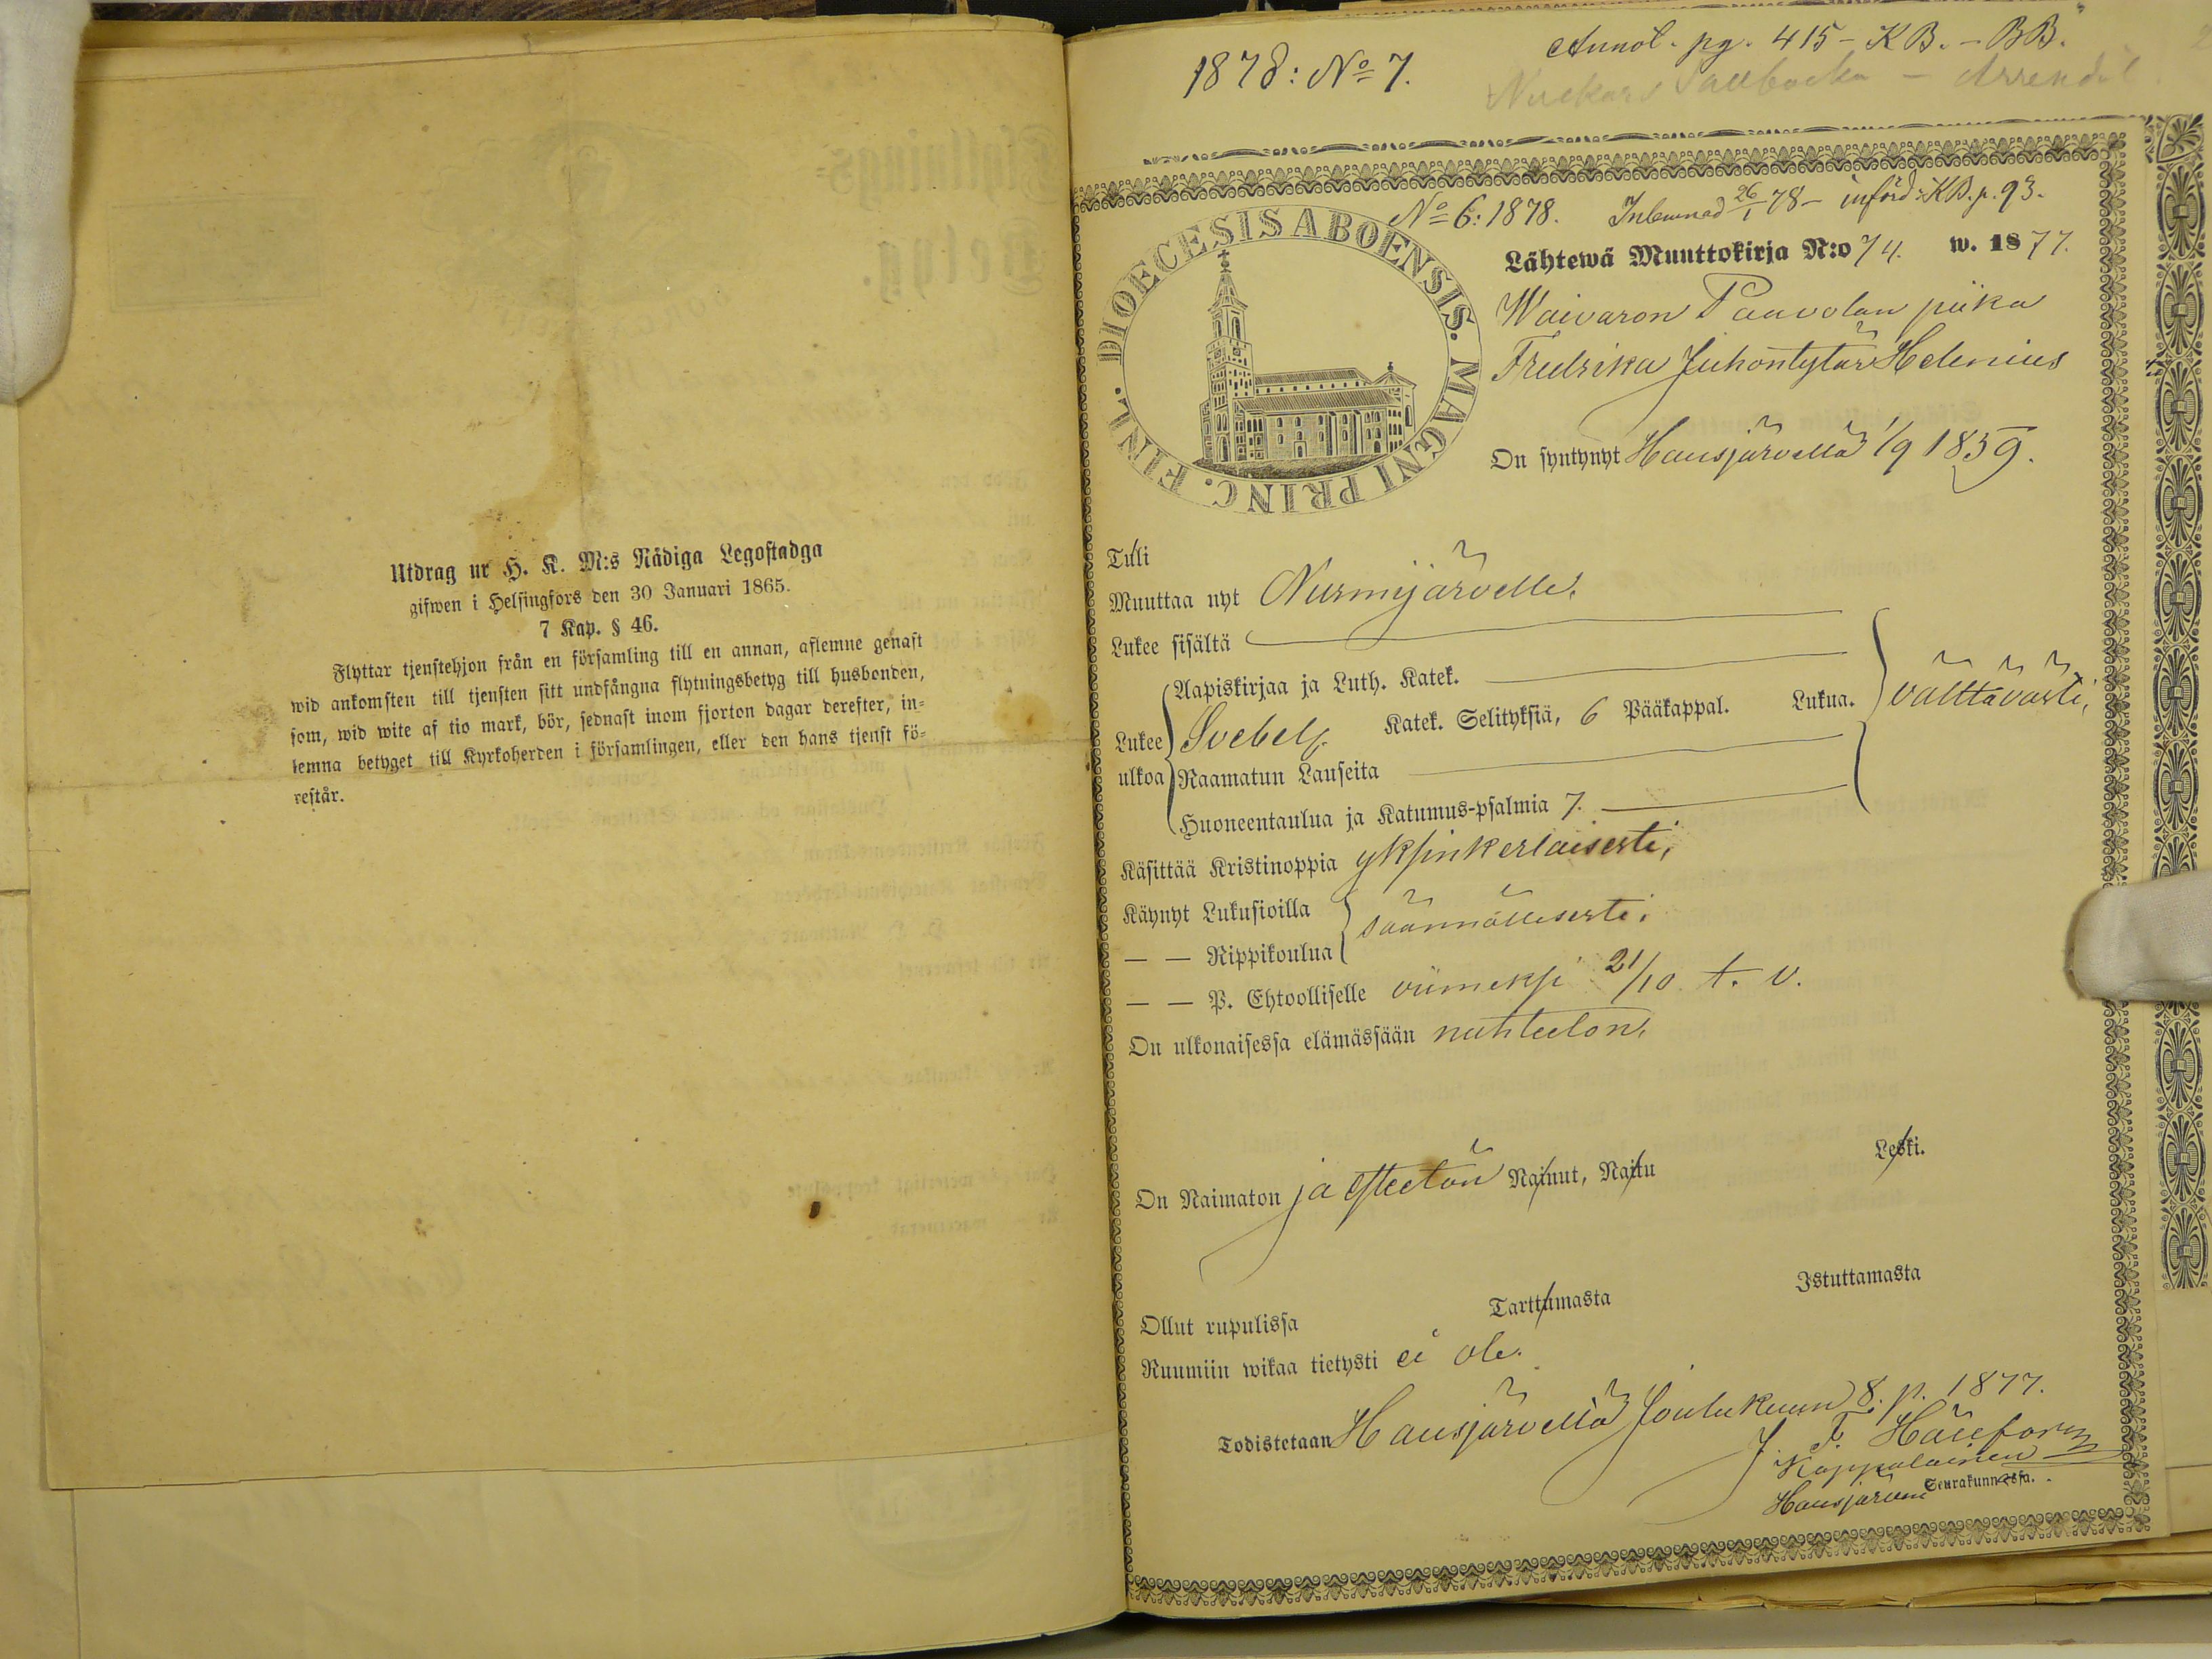 Utdrag ur H. K. M:s Nådiga Legostadga
gifwen i Helsingfors den 30 Januari 1865.
7 Kap. § 46.
Flyttar tjenstehjon från en församling till en annan, aflemne genast
wid ankomsten till tjensten sitt undfångna flytningsbetyg till husbonden,
som, wid wite af tio mark, bör, sednast inom fjorton dagar derefter, in-
lemna betyget till Kyrkoherden i församlingen, eller den hans tjenst fö-
restår.
1878: No 7.
Annot. pg. 415 - KB. - BB.
No 6: 1878. Inlemnad 26/1 78 - införd: KB. p. 93.
DIOECESIS ABOENSIS. MAGNI PRINC. FINL.
Lähtewä Muuttokirja N:o 74. w. 1877.
Waivaron Paavolan piika
Fredrika Juhontytär Helenius
On syntynyt Hausjärvellä 1/9 1859.
Tuli
Muuttaa nyt Nurmijärvelle.
Lukee sisältä
Aapiskirjaa ja Luth. Katek.
Lukee ulkoa Svebel. Katek. Selityksiä, 6 Pääkappal. Lukua. välttävästi,
Raamatun Lauseita
Huoneentaulua ja Katumus-psalmia 7.
Käsittää Kristinoppia yksinkertaisesti,
Käynyt Lukusioilla säännöllisesti.
— — Rippikoulua
— — P. Ehtoolliselle viimeksi 21/10 t. v.
On ulkonaisessa elämässään nuhteeton,
On Naimaton ja esteetön Nainut, Naitu Leski.
Ollut rupulissa Tarttumasta Istuttamasta
Ruumiin wikaa tietysti ei ole.
Todistetaan Hausjärvellä Joulukuun 8. p. 1877.
Kappalainen
Hausjärven Seurakunnassa.